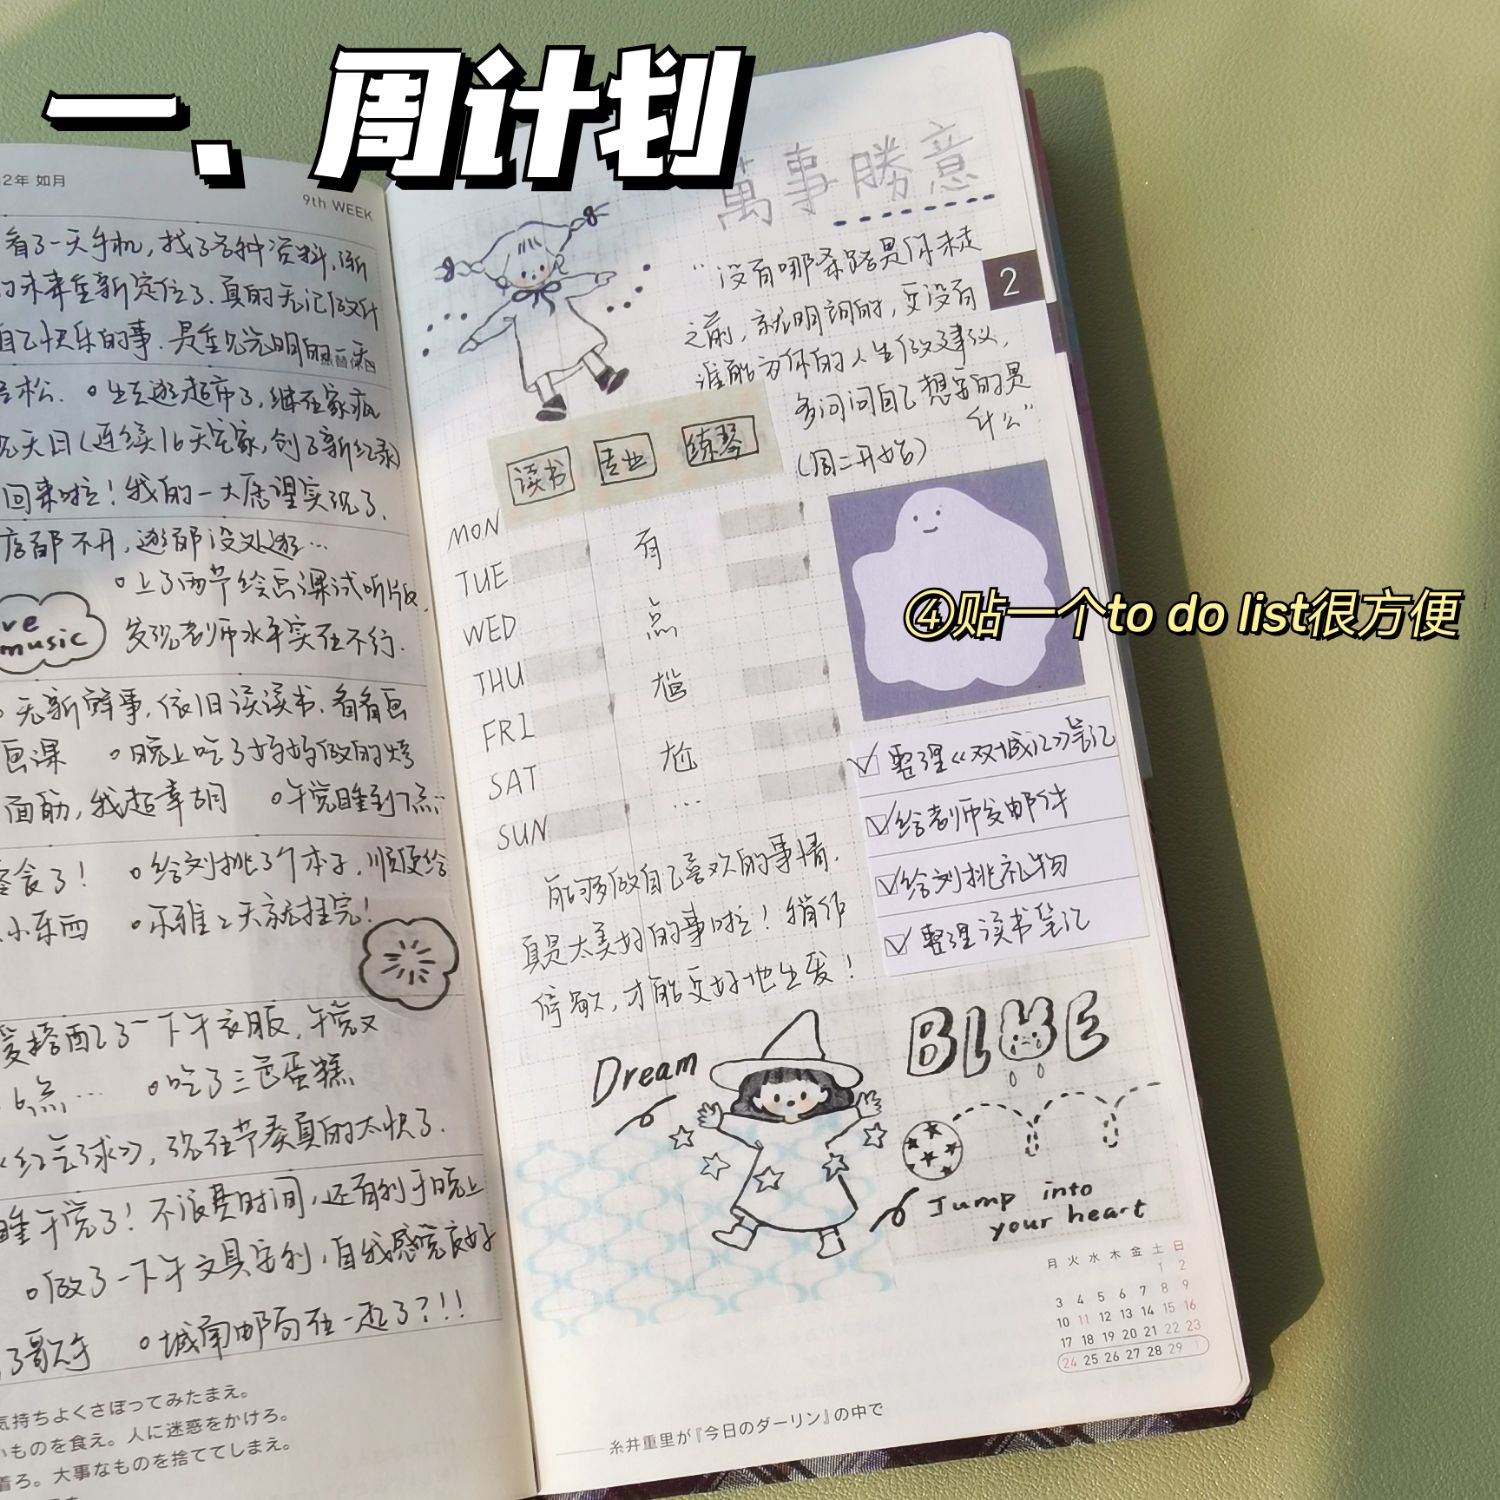 一、周计划
2年 如月
9th WEEK
看了一天手机，找了各种资料，渐
的未来重新定位了，真的无论做什
自己快乐的事，是重见光明的一天
轻松。○生去逛超市了，继在家疯
天日（连续16天宅家，创了新纪录）
回来啦！我的一大愿望实现了。
店都不开，逛都没处逛…
○上了两节绘画课试听版，
发现老师水平实在不行。
ve
music
无新鲜事，依旧读读书，看看画
画课 ○晚上吃了妈妈做的烤
面筋，我超幸胡 ○午觉睡到7点…
零食了！ ○给刘挑了个本子，顺便给
小东西 ○不难2天就挂完！
搭配了一下午衣服，午觉又
6点… ○吃了三色蛋糕
《红气球》，现在节奏真的太快了。
睡午觉了！不浪费时间，还有利于晚上
○做了一下午文具安利，自我感觉良好
了歌手 ○城南邮局在一起了？!!
気持ちよくさぼってみたまえ。
いものを食え。人に迷惑をかけろ。
着ろ。大事なものを捨ててしまえ。
萬事勝意
“没有哪条路是你未走
之前，就明朗的，更没有
谁能为你的人生做建议，
多问问自己想要的是
什么”
2
（周二开始）
读书 专业 练琴
MON
TUE 有
WED 点
THU 尴
FRI
SAT 尬
SUN …
④贴一个to do list很方便
整理《双城记》笔记
给老师发邮件
给刘挑礼物
整理读书笔记
能够做自己喜欢的事情，
真是太美好的事啦！稍作
停歇，才能更好地出发！
Dream
BLUE
Jump into
your heart
月 火 水 木 金 土 日
1 2
3 4 5 6 7 8 9
10 11 12 13 14 15 16
17 18 19 20 21 22 23
24 25 26 27 28 29 1
糸井重里が『今日のダーリン』の中で